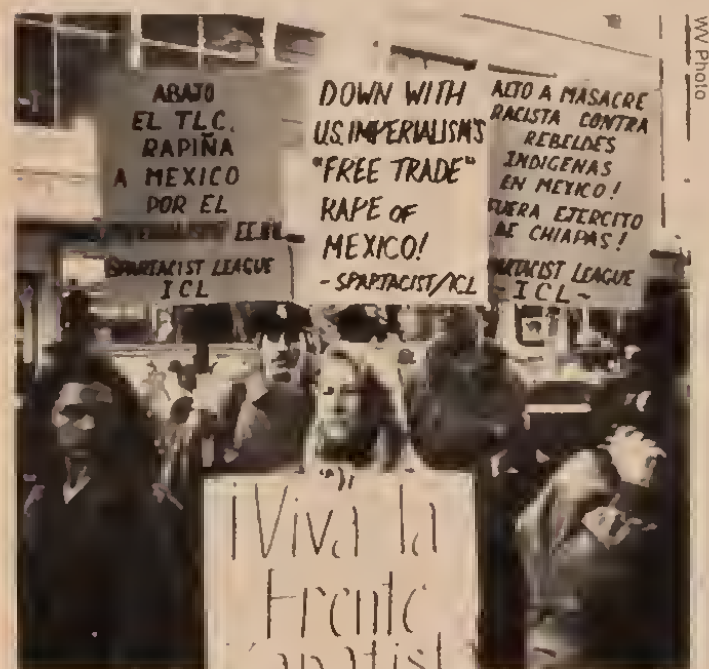 ABAJO
EL TLC,
RAPIÑA
A MEXICO
POR EL
EE.UU.
SPARTACIST LEAGUE
ICL
DOWN WITH
U.S. IMPERIALISM'S
"FREE TRADE"
RAPE OF
MEXICO!
- SPARTACIST/ICL
ALTO A MASACRE
RACISTA CONTRA
REBELDES
INDIGENAS
EN MEXICO!
FUERA EJERCITO
DE CHIAPAS!
SPARTACIST LEAGUE
- ICL -
¡Viva la
Frente
WV Photo